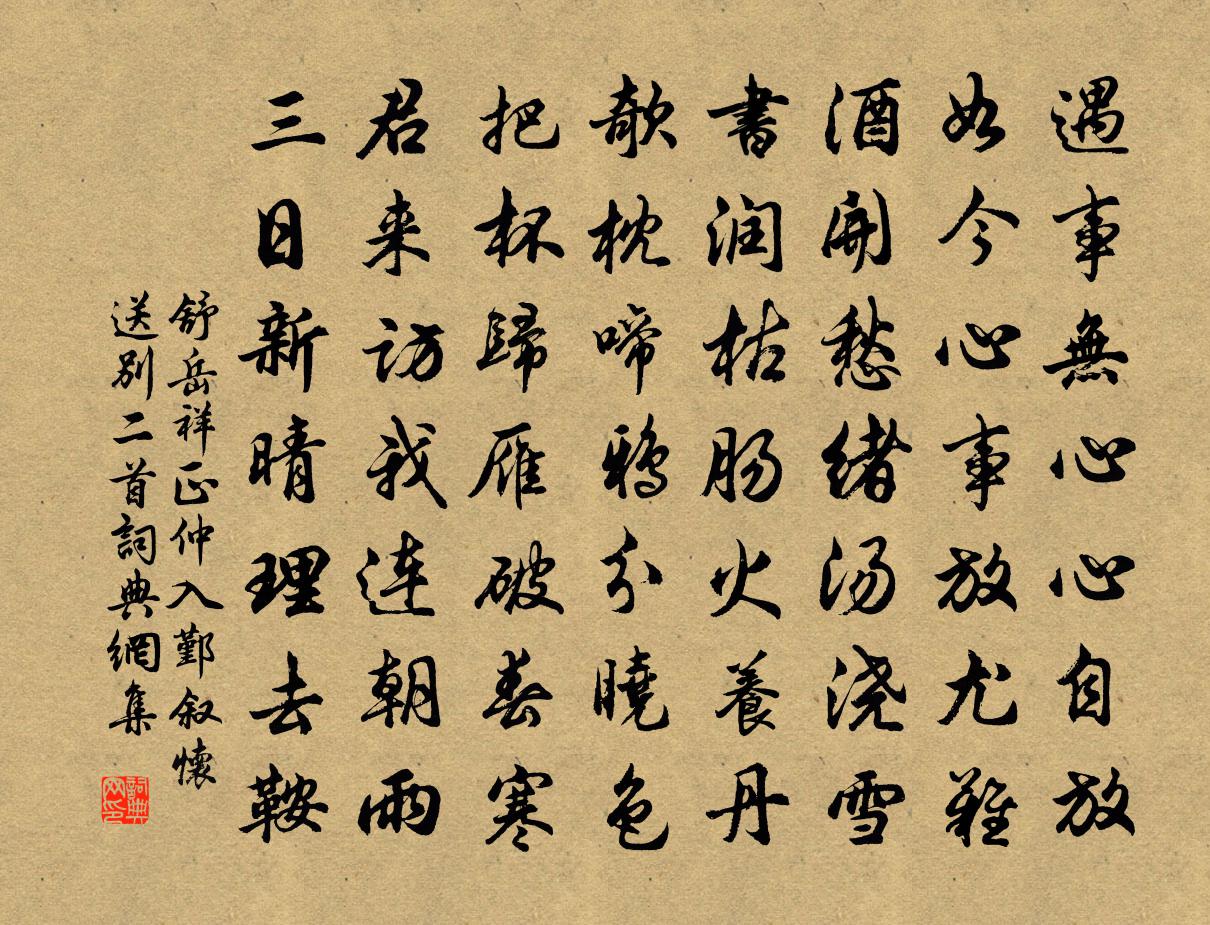 遇事無心心自放
如今心事放尤難
酒開愁緒湯浇雪
書润枯肠火養丹
欹枕啼鴉分曉色
把杯歸雁破春寒
君来訪我連朝雨
三日新晴理去鞍
舒岳祥正仲入鄞叙懷
送别二首詞典網集
詞典网印